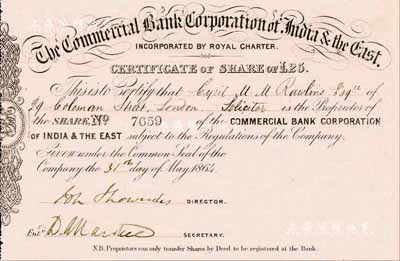 The Commercial Bank Corporation of India & the East.
INCORPORATED BY ROYAL CHARTER.
CERTIFICATE OF SHARE OF £25.
This is to Certify that Cyril M. M. Rawlins Esqre of
29 Coleman Street, London Solicitor is the Proprietor of
the SHARE, No 7659 of the COMMERCIAL BANK CORPORATION
OF INDIA & THE EAST subject to the Regulations of the Company.
Given under the Common Seal of the
Company the 31st day of May 1864
DIRECTOR.
Entd
SECRETARY.
N.B. Proprietors can only transfer Shares by Deed to be registered at the Bank.